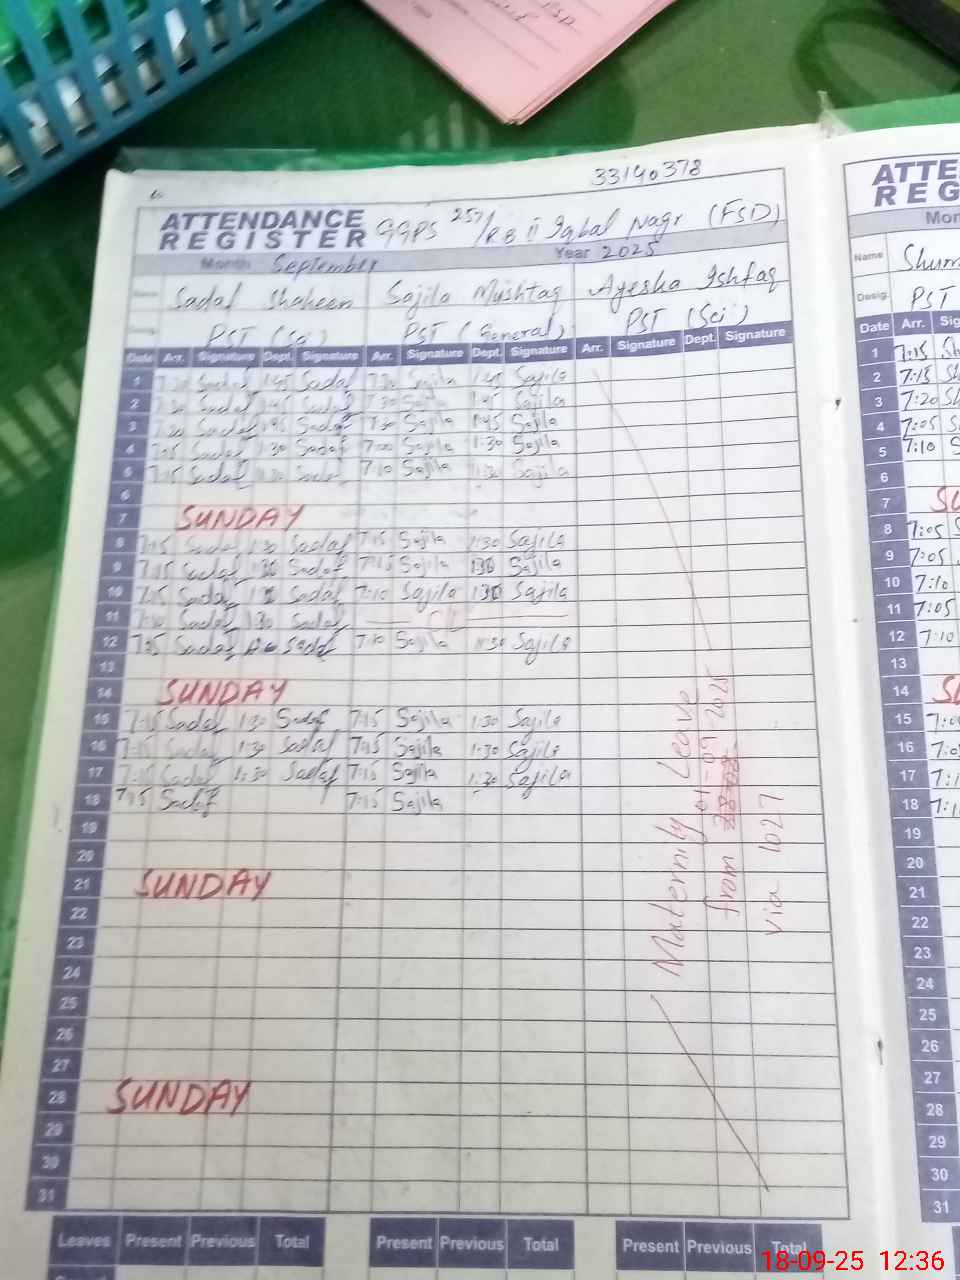 33140378
ATTENDANCE REGISTER GGPS 257/RB ii Iqbal Nagr (FSD)
Month September Year 2025
Name Sadaf Shaheen Sajila Mushtaq Ayesha Ishfaq
Desig. PST (Sci) PST (General) PST (Sci)
Date Arr. Signature Dept. Signature Arr. Signature Dept. Signature Arr. Signature Dept. Signature
1 7:30 Sadaf 1:45 Sadaf 7:30 Sajila 1:45 Sajila
2 7:30 Sadaf 1:45 Sadaf 7:30 Sajila 1:45 Sajila
3 7:30 Sadaf 1:45 Sadaf 7:30 Sajila 1:45 Sajila
4 7:05 Sadaf 1:30 Sadaf 7:00 Sajila 1:30 Sajila
5 7:15 Sadaf 1:30 Sadaf 7:10 Sajila 1:30 Sajila
6
7 SUNDAY
8 7:15 Sadaf 1:30 Sadaf 7:15 Sajila 1:30 Sajila
9 7:15 Sadaf 1:30 Sadaf 7:15 Sajila 1:30 Sajila
10 7:15 Sadaf 1:30 Sadaf 7:10 Sajila 1:30 Sajila
11 Sadaf 1:30 Sadaf
12 7:15 Sadaf Sadaf 7:10 Sajila 1:30 Sajila
13
14 SUNDAY
15 7:15 Sadaf 1:30 Sadaf 7:15 Sajila 1:30 Sajila
16 7:15 Sadaf 1:30 Sadaf 7:15 Sajila 1:30 Sajila
17 7:15 Sadaf 1:30 Sadaf 7:15 Sajila 1:30 Sajila
18 7:15 Sadaf 7:15 Sajila
19
20
21 SUNDAY
22
23
24
25
26
27
28 SUNDAY
29
30
31
Maternity Leave
from 01-09-2025
via 1027
Leaves Present Previous Total Present Previous Total Present Previous Total
REG
Name
Desig. PST
Date Arr.
1 7:15
2 7:15
3 7:20
4 7:05
5 7:10
6
7
8 7:05
9 7:05
10 7:10
11 7:05
12 7:10
13
14
15
16
17
18
19
20
21
22
23
24
25
26
27
28
29
30
31
18-09-25 12:36